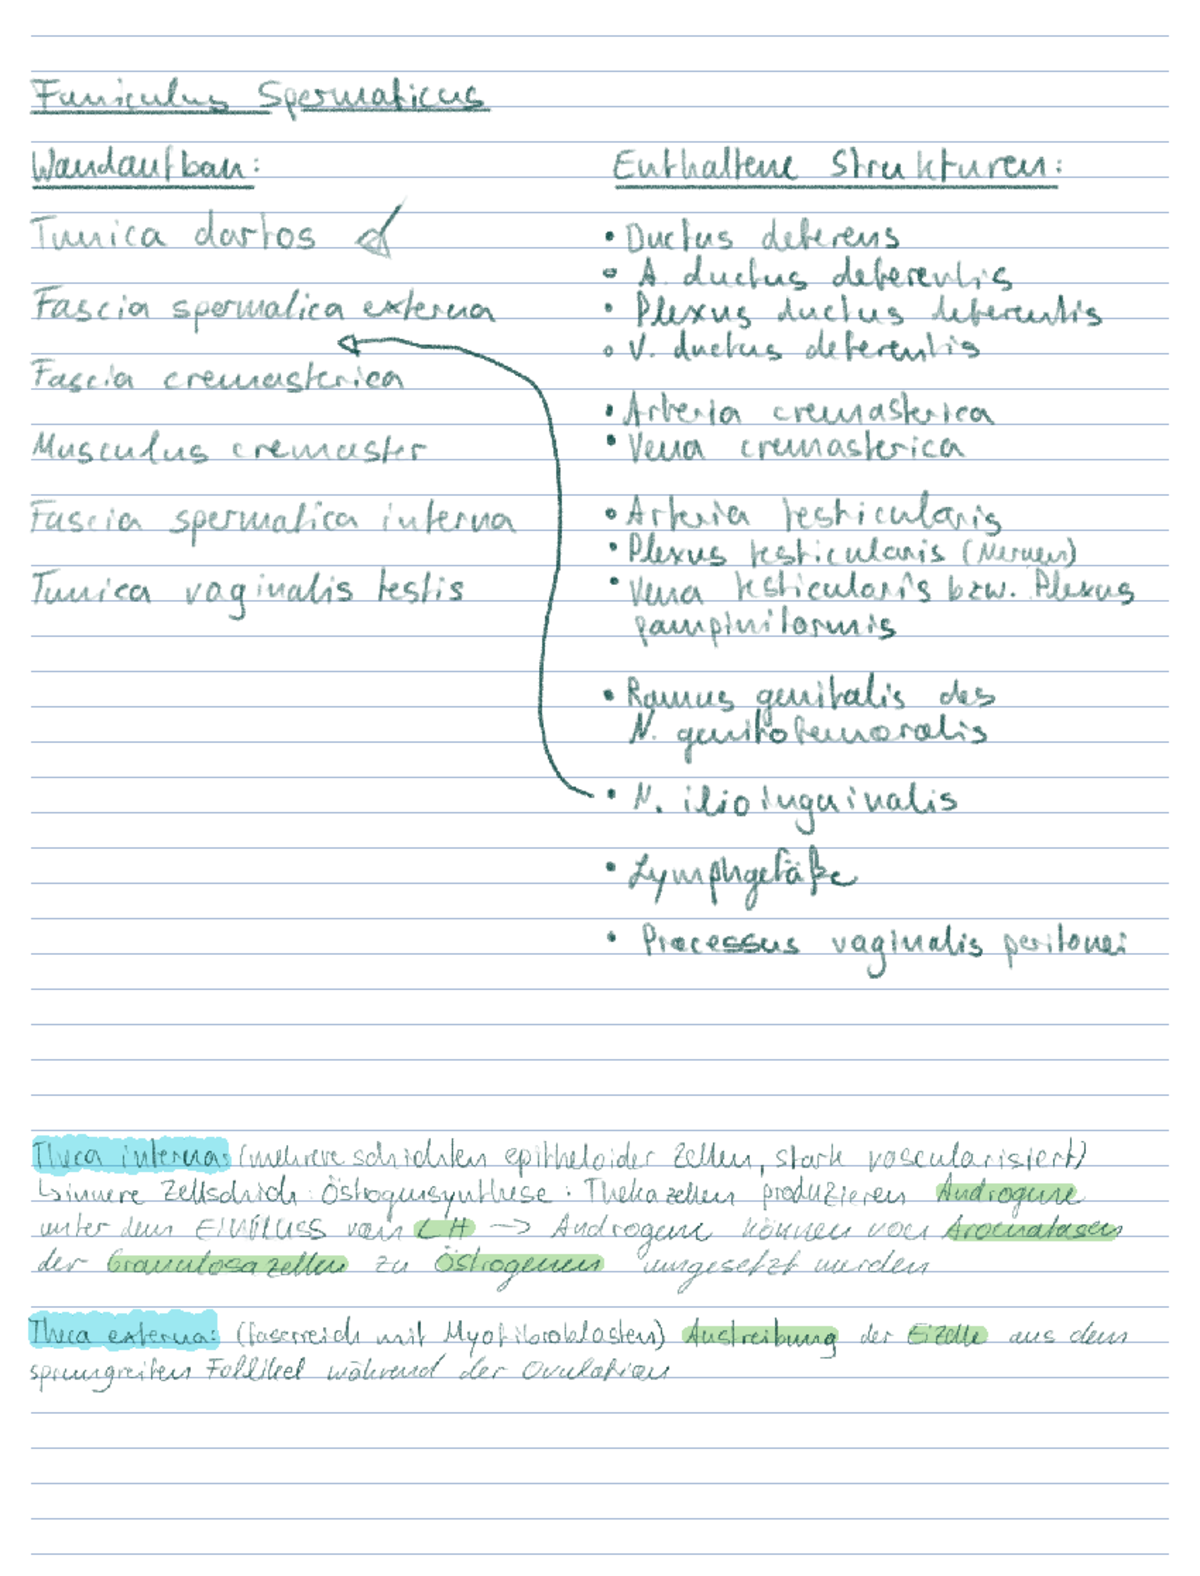 Funiculus Spermaticus
Wandaufbau:
Tunica dartos
Fascia spermatica externa
Fascia cremasterica
Musculus cremaster
Fascia spermatica interna
Tunica vaginalis testis
Enthaltene Strukturen:
• Ductus deferens
• A. ductus deferentis
• Plexus ductus deferentis
• V. ductus deferentis
• Arteria cremasterica
• Vena cremasterica
• Arteria testicularis
• Plexus testicularis (Nerven)
• Vena testicularis bzw. Plexus
pampiniformis
• Ramus genitalis des
N. genitofemoralis
• N. ilioinguinalis
• Lymphgefäße
• Processus vaginalis peritonei
Theca interna: (mehrere schichten epitheloider Zellen, stark vascularisiert)
↳ innere Zellschich: Östrogensynthese: Thekazellen produzieren Androgene
unter dem EINFLUSS von LH → Androgene können von Aromatasen
der Granulosazellen zu Östrogenen umgesetzt werden
Theca externa: (faserreich mit Myofibroblasten) Austreibung der Eizelle aus dem
sprungreifen Follikel während der Ovulation